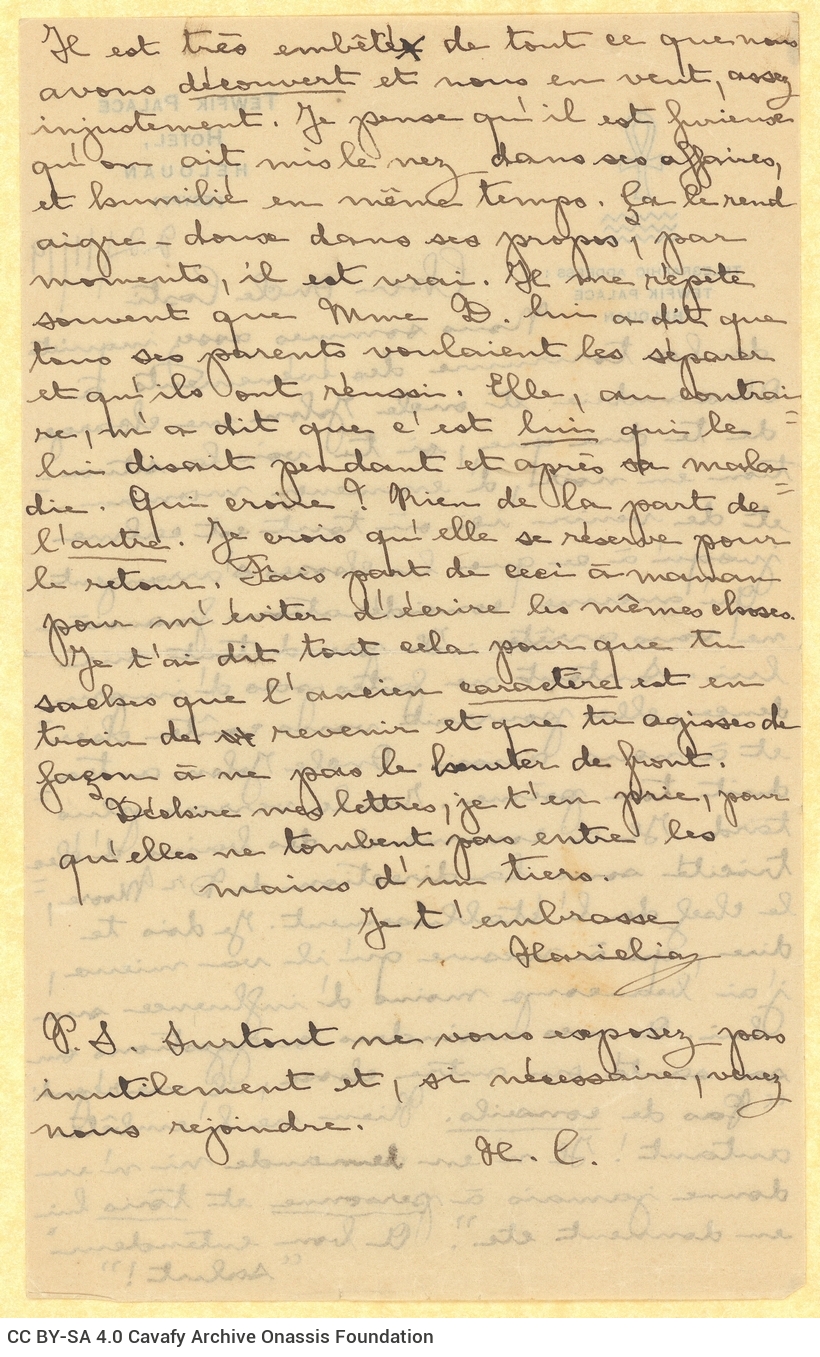 Il est très embêté de tout ce que nous
avons découvert et nous en veut, assez
injustement. Je pense qu'il est furieux
qu'on ait mis le nez dans ses affaires,
et humilié en même temps. Ça le rend
aigre-doux dans ses propos, par
moments, il est vrai. Il me répète
souvent que Mme D. lui a dit que
tous ses parents voulaient les séparer
et qu'ils ont réussi. Elle, au contrai
re, m'a dit que c'est lui qui le
lui disait pendant et après sa mala
die. Qui croire? Rien de la part de
l'autre. Je crois qu'elle se réserve pour
le retour. Fais part de ceci à maman
pour m'éviter d'écrire les mêmes choses.
Je t'ai dit tout cela pour que tu
saches que l'ancien caractère est en
train de revenir et que tu agisses de
façon à ne pas le heurter de front.
Déchire mes lettres, je t'en prie, pour
qu'elles ne tombent pas entre les
mains d'un tiers.
Je t'embrasse
Hariclia
P.S. Surtout ne vous exposez pas
inutilement et, si nécessaire, venez
nous rejoindre.
H. C.
CC BY-SA 4.0 Cavafy Archive Onassis Foundation